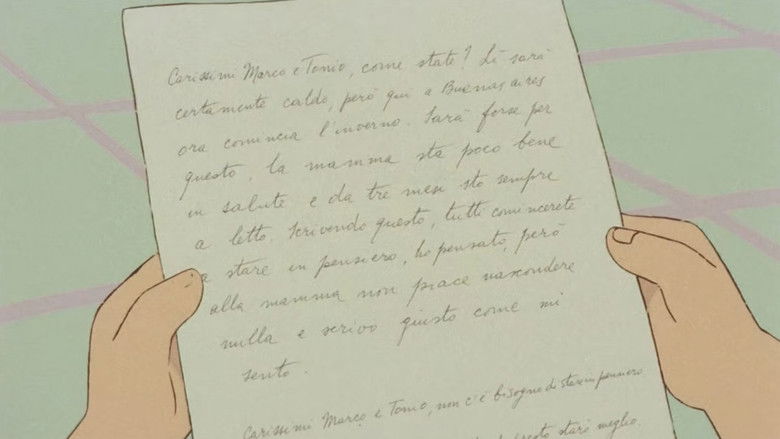 Carissimi Marco e Tonio, come state? Lì sarà
certamente caldo, però qui a Buenas aires
ora comincia l'inverno. Sarà forse per
questo, la mamma sta poco bene
in salute e da tre mesi sto sempre
a letto. Scrivendo questo, tutti comincerete
a stare in pensiero, ho pensato, però
alla mamma non piace nascondere
nulla e scrivo giusto come mi
sento.
Carissimi Marco e Tonio, non c'è bisogno di stare in pensiero
questo starò meglio.